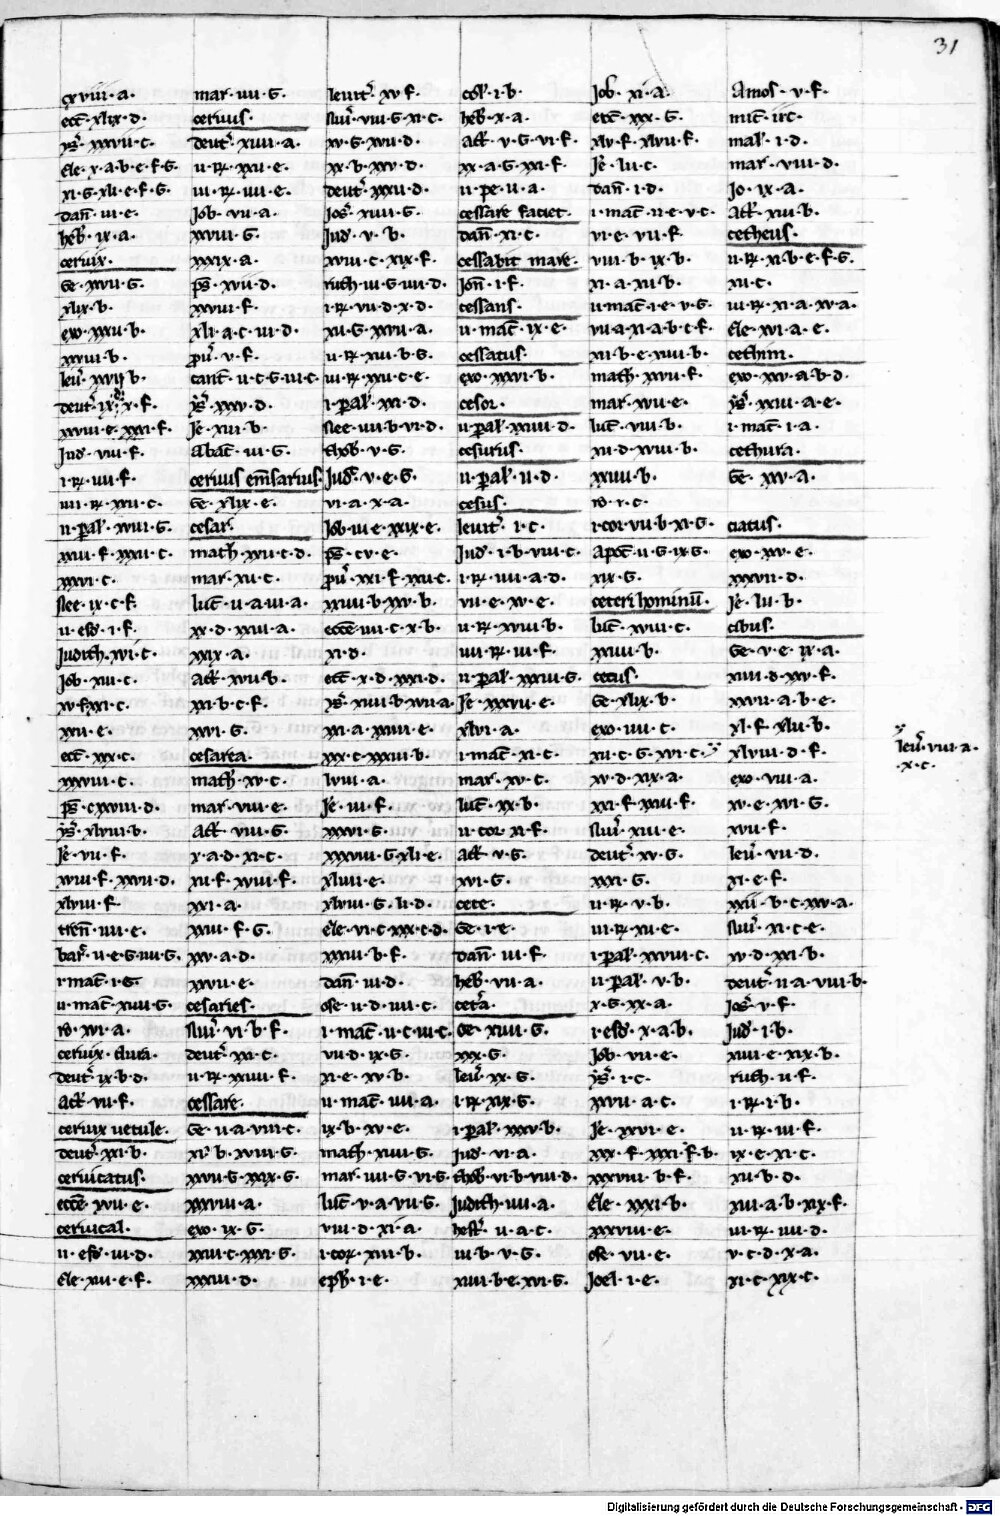 31
cxviii · a ·
ecc̄ · xlix · d ·
ys̄ · xxxvii · c ·
eʒe · x · a · b · c · f · g ·
xi · g · xli · e · f · g ·
dan̄ · iii · e ·
heb̄ · ix · a ·
ceruix ·
Ge · xvii · g ·
xlix · b ·
exo · xxxii · b ·
xxxiii · b ·
leu᷑ · xxvii · b ·
deut᷑ · ix · x · f ·
xviii · e · xxxi · f ·
Iud · viii · f ·
i · rꝫ · iiii · f ·
iiii · rꝫ · xxi · c ·
ii · pal · xvii · g ·
xxiii · f · xxxii · c ·
xxxvi · c ·
nee · ix · c · f ·
ii · esd · i · f ·
Iudith · xvi · c ·
Iob · xiii · c ·
xv · f · xxi · c ·
xxii · e ·
ecc̄ · xxx · c ·
xxxviii · c ·
ps̄ · cxxviii · d ·
ys̄ · xlviii · b ·
Ie᷑ · vii · f ·
xviii · f · xxvii · d ·
xlviii · f ·
tren̄ · iiii · e ·
bar᷑ · ii · e · g · iiii · g ·
i · mac̄ · i · g ·
ii · mac̄ · xiii · g ·
ro · xvi · a ·
ceruix dura ·
deut᷑ · ix · b · d ·
Act᷑ · vii · f ·
ceruix uetule ·
deut᷑ · xxi · b ·
ceruicatus ·
ecce · xvi · e ·
ceruical ·
ii · esd · iii · d ·
eʒe · xiii · e · f ·
mar · iiii · g ·
ceruus ·
deut᷑ · xiiii · a ·
ii · rꝫ · xxii · e ·
iii · rꝫ · iiii · e ·
Iob · vii · a ·
xxviii · g ·
xxxix · a ·
ps̄ · xvii · d ·
xxviii · f ·
xli · a · c · iii · d ·
pu᷑ · v · f ·
cant · ii · c · g · iii · c ·
ys̄ · xxxv · d ·
Ie᷑ · xiii · b ·
Abac̄ · iii · g ·
ceruus em̄sarius ·
Ge · xlix · e ·
cesar ·
math · xxii · c · d ·
mar · xii · c ·
luc̄ · ii · a · iii · a ·
xx · d · xxiii · a ·
xxix · a ·
Act᷑ · xvii · b ·
xxi · b · c · f ·
xxvi · g ·
cesarea ·
math · xv · c ·
mar · viii · e ·
Act᷑ · viii · g ·
x · a · d · xi · c ·
xii · f · xviii · f ·
xxi · a ·
xxiii · f · g ·
xxv · a · d ·
xxvii · e ·
cesaries ·
nu᷑ · vi · b · f ·
deut᷑ · xxi · c ·
ii · rꝫ · xxiiii · f ·
cessare ·
Ge · ii · a · viii · c ·
xi · b · xviii · g ·
xxvii · g · xxix · g ·
xxxviii · a ·
exo · ix · g ·
xxiii · c · xxxi · g ·
xxxiii · d ·
leuit᷑ · xv · f ·
nu᷑ · viii · g · xi · c ·
xv · g · xvii · d ·
xx · b · xxv · d ·
deut᷑ · xxxii · d ·
Ios᷑ · xiiii · g ·
Iud · v · b ·
xviii · c · xix · f ·
ruth · iii · g · iiii · d ·
i · rꝫ · vii · d · x · d ·
xii · g · xxvii · a ·
ii · rꝫ · xiii · b · g ·
iii · rꝫ · xxii · c · e ·
i · pal · xxi · d ·
nee · iiii · b · vi · d ·
thob · v · g ·
Iud᷑ · v · e · g ·
vi · a · x · a ·
Iob · iii · e · xxix · e ·
ps̄ · cv · e ·
pu᷑ · xxi · f · xxii · c ·
xxiiii · b · xxv · b ·
ecce · iiii · c · x · b ·
xi · d ·
ecc̄ · x · d · xxxi · d ·
ys̄ · xiiii · b · xvii · a ·
xxi · a · xxiiii · e ·
xxx · c · xxxiii · b ·
lviii · a ·
Ie᷑ · iii · f ·
xxxvi · g ·
xxxviii · g · xli · e ·
xliiii · e ·
xlviii · g · li · d ·
eʒe · vi · c · xxx · c · d ·
xxxiii · b · f ·
dan̄ · iii · d ·
ose · ii · d · iiii · c ·
i · mac̄ · ii · c · iii · c ·
vii · d · ix · g ·
xi · e · xv · b ·
ii · mac̄ · iiii · a ·
ix · b · xv · e ·
math · xiiii · g ·
mar · iiii · g · vi · g ·
luc̄ · v · a · vii · g ·
viii · d · xi · a ·
i · cor · xiii · b ·
eph · i · e ·
col · i · b ·
heb · x · a ·
Act᷑ · v · g · vi · f ·
xx · a · g · xxi · f ·
ii · pe · ii · a ·
cessare faciet ·
dan̄ · xi · c ·
cessabit mare ·
Ion̄ · i · f ·
cessans ·
ii · mac̄ · ix · e ·
cessatus ·
exo · xxxvi · b ·
cesor ·
ii · pal · xxiiii · d ·
cesurus ·
ii · pal · ii · d ·
cesus ·
leuit᷑ · i · c ·
Iud · i · b · viii · c ·
i · rꝫ · iiii · a · d ·
vii · e · xv · e ·
ii · rꝫ · xviii · b ·
iiii · rꝫ · iii · f ·
ii · pal · xxxiii · g ·
Ie᷑ · xxxvii · e ·
xlvi · a ·
i · mac̄ · xi · c ·
mar · xv · c ·
luc̄ · xx · b ·
ii · cor · xi · f ·
Act᷑ · v · g ·
xvi · g ·
cete ·
Ge · i · e ·
dan̄ · iii · f ·
heb · vii · a ·
cet᷑a ·
Ge · xiiii · g ·
xxx · g ·
leu᷑ · xx · g ·
i · rꝫ · xix · g ·
i · pal · xxxv · b ·
Iud · vi · a ·
thob · vi · b · viii · d ·
Iudith · iiii · a ·
hest᷑ · ii · a · c ·
iii · b · v · g ·
xiiii · b · e · xvi · g ·
Iob · xi · a ·
ecc̄ · xxx · g ·
xlv · f · xlvii · f ·
Ie᷑ · lii · c ·
dan̄ · i · d ·
i · mac̄ · ii · e · v · c ·
vi · e · vii · f ·
viii · b · ix · b ·
xi · a · xii · b ·
ii · mac̄ · i · e · v · g ·
vii · a · xi · a · b · c · f ·
xii · b · e · xiiii · b ·
math · xxvii · f ·
mar · xvii · e ·
luc̄ · viii · b ·
xii · d · xviii · b ·
xxiiii · b ·
ro · i · c ·
i · cor · vii · b · xi · g ·
Apoc̄ · ii · g · ix · g ·
xix · g ·
ceteri hominū ·
luc̄ · xviii · c ·
xxiiii · b ·
cetus ·
Ge · xlix · b ·
exo · iiii · c ·
xii · c · g · xvi · c ·
xv · d · xix · a ·
xxi · f · xxiii · f ·
nu᷑ · xiii · e ·
deut᷑ · xv · g ·
xxxi · g ·
ii · rꝫ · v · b ·
iii · rꝫ · xii · e ·
i · pal · xxviii · c ·
ii · pal · v · b ·
x · g · xx · a ·
i · esd · x · a · b ·
Iob · vii · e ·
ys̄ · i · c ·
xxvii · a · c ·
Ie᷑ · xxvi · e ·
xxx · f · xxxi · f · b ·
xxxviii · b · f ·
eʒe · xxxi · b ·
xxxviii · e ·
ose · vii · e ·
Ioel · i · e ·
Amos · v · f ·
mic̄ · ii · c ·
mal · i · d ·
mar · viii · d ·
Io · ix · a ·
Act᷑ · xiii · b ·
cetheus ·
ii · rꝫ · xi · b · e · f · g ·
xii · c ·
iii · rꝫ · xi · a · xv · a ·
eʒe · xvi · a · e ·
cethim ·
exo · xxv · a · b · d ·
ys̄ · xxiii · a · e ·
i · mac̄ · i · a ·
cethura ·
Ge · xxv · a ·
ciatus ·
exo · xxv · e ·
xxxvii · d ·
Ie᷑ · lii · b ·
cibus ·
Ge · v · e · ix · a ·
xiiii · d · xxv · f ·
xxvii · a · b · e ·
xl · f · xlii · b ·
xlviii · d · f ·
exo · viii · a ·
xv · e · xvi · g ·
xvii · f ·
leu᷑ · vii · d ·
xi · e · f ·
xxii · b · c · xxv · a ·
nu᷑ · xi · c · e ·
xv · d · xxi · b ·
deut᷑ · ii · a · viii · b ·
Ios᷑ · v · f ·
Iud · i · b ·
xiiii · c · xix · b ·
ruth · ii · f ·
i · rꝫ · i · b ·
ii · rꝫ · iii · f ·
ix · e · xi · c ·
xii · b · d ·
xiii · a · b · xix · f ·
iii · rꝫ · iiii · d ·
v · c · d · x · a ·
xi · c · xix · c ·
leu᷑ · viii · a ·
· x · c ·
Digitalisierung gefördert durch die Deutsche Forschungsgemeinschaft - DFG